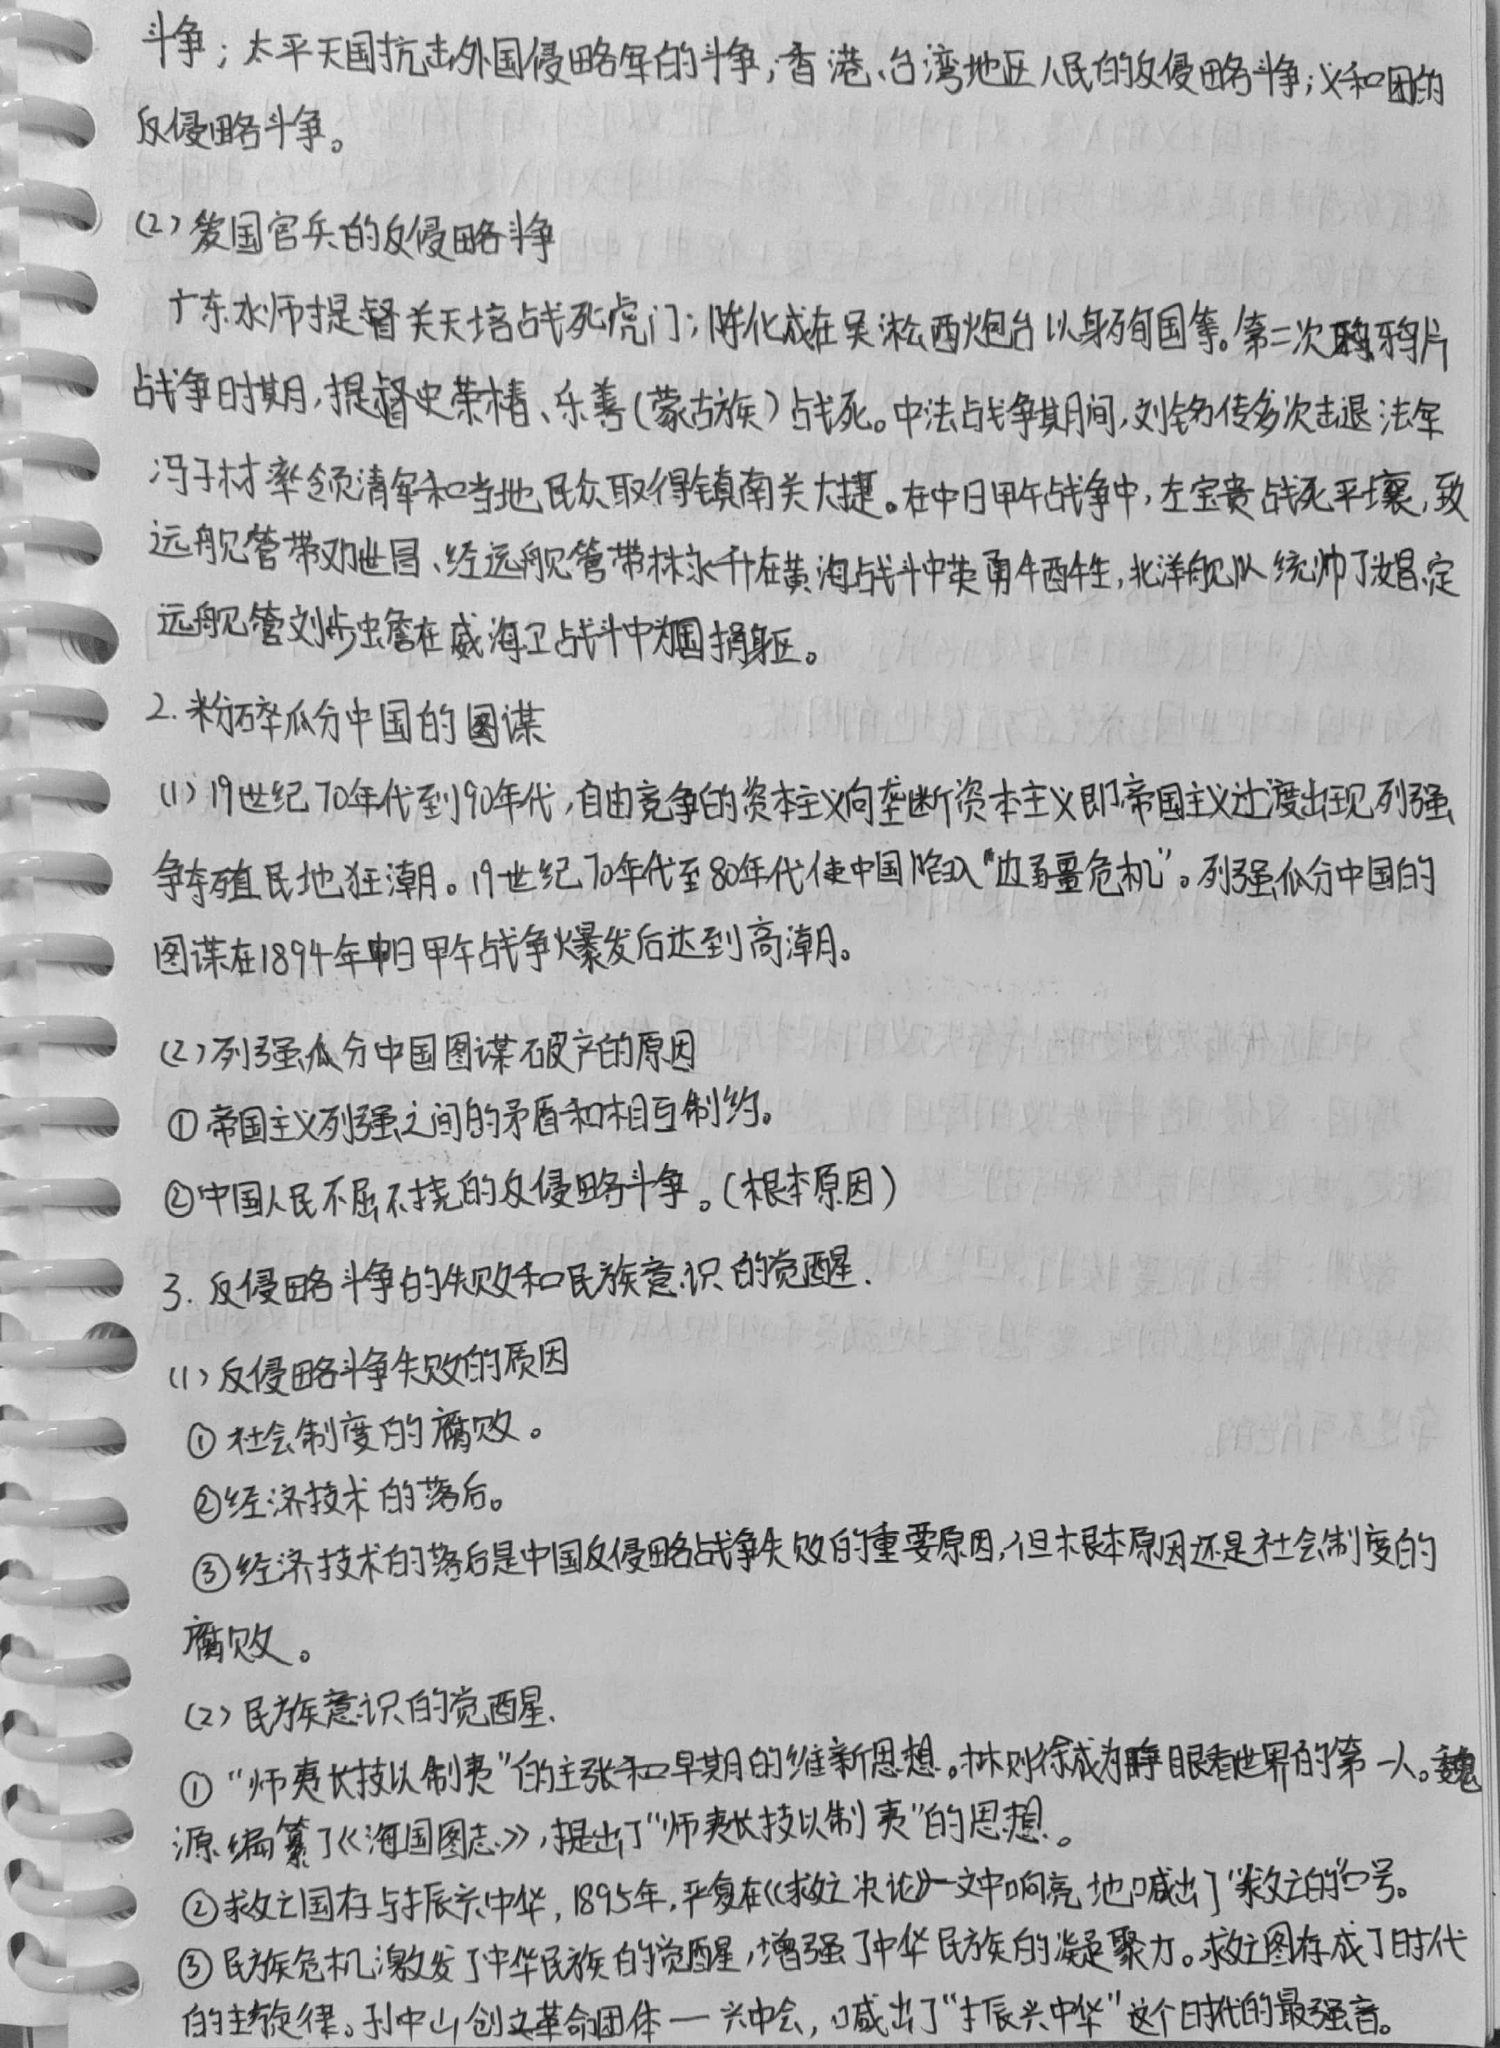 斗争；太平天国抗击外国侵略军的斗争；香港、台湾地区人民的反侵略斗争；义和团的
反侵略斗争。
(2) 爱国官兵的反侵略斗争
广东水师提督关天培战死虎门；陈化成在吴淞西炮台以身殉国等。第二次鸦片
战争时期，提督史荣椿、乐善（蒙古族）战死。中法战争期间，刘铭传多次击退法军
冯子材率领清军和当地民众取得镇南关大捷。在中日甲午战争中，左宝贵战死平壤，致
远舰管带邓世昌、经远舰管带林永升在黄海战斗中英勇牺牲，北洋舰队统帅丁汝昌、定
远舰管刘步蟾在威海卫战斗中为国捐躯。
2. 粉碎瓜分中国的图谋
(1) 19世纪70年代到90年代，自由竞争的资本主义向垄断资本主义即帝国主义过渡出现列强
争夺殖民地狂潮。19世纪70年代至80年代使中国陷入“边疆危机”。列强瓜分中国的
图谋在1894年中日甲午战争爆发后达到高潮。
(2) 列强瓜分中国图谋破产的原因
① 帝国主义列强之间的矛盾和相互制约。
② 中国人民不屈不挠的反侵略斗争。（根本原因）
3. 反侵略斗争的失败和民族意识的觉醒.
(1) 反侵略斗争失败的原因
① 社会制度的腐败。
② 经济技术的落后。
③ 经济技术的落后是中国反侵略战争失败的重要原因，但根本原因还是社会制度的
腐败。
(2) 民族意识的觉醒.
① “师夷长技以制夷”的主张和早期的维新思想。林则徐成为睁眼看世界的第一人。魏
源编纂了《海国图志》，提出了“师夷长技以制夷”的思想。
② 救亡国存与振兴中华，1895年，严复在《救亡决论》一文中响亮地喊出了“救亡的”口号。
③ 民族危机激发了中华民族的觉醒，增强了中华民族的凝聚力。救亡图存成了时代
的主旋律。孙中山创立革命团体—兴中会，喊出了“振兴中华”这个时代的最强音。